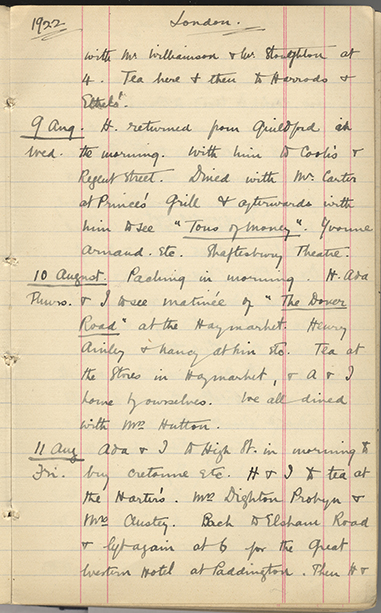 1922 London.
with Mr Williamson & Mr Stoughton at
4. Tea here & then to Harrods &
Ethels'.
9 Aug. H. returned from Guildford in
Wed. the morning. With him to Cook's &
Regent Street. Dined with Mr. Carter
at Prince's Grill & afterwards with
him to see "Tons of Money". Yvonne
Arnaud. Etc. Shaftesbury Theatre.
10 August. Packing in morning. H. Ada
Thurs. & I to see matinée of "The Dover
Road" at the Haymarket. Henry
Ainley & Nancy Atkin Etc. Tea at
the Stores in Haymarket, & A & I
home by ourselves. We all dined
with Mrs Hutton.
11 Aug Ada & I to High St. in morning to
Fri. buy cretonne Etc. H & I to tea at
the Harter's. Mrs Dighton Probyn &
Mrs. Back to Elsham Road
& left again at 6 for the Great
Western Hotel at Paddington. Then H &